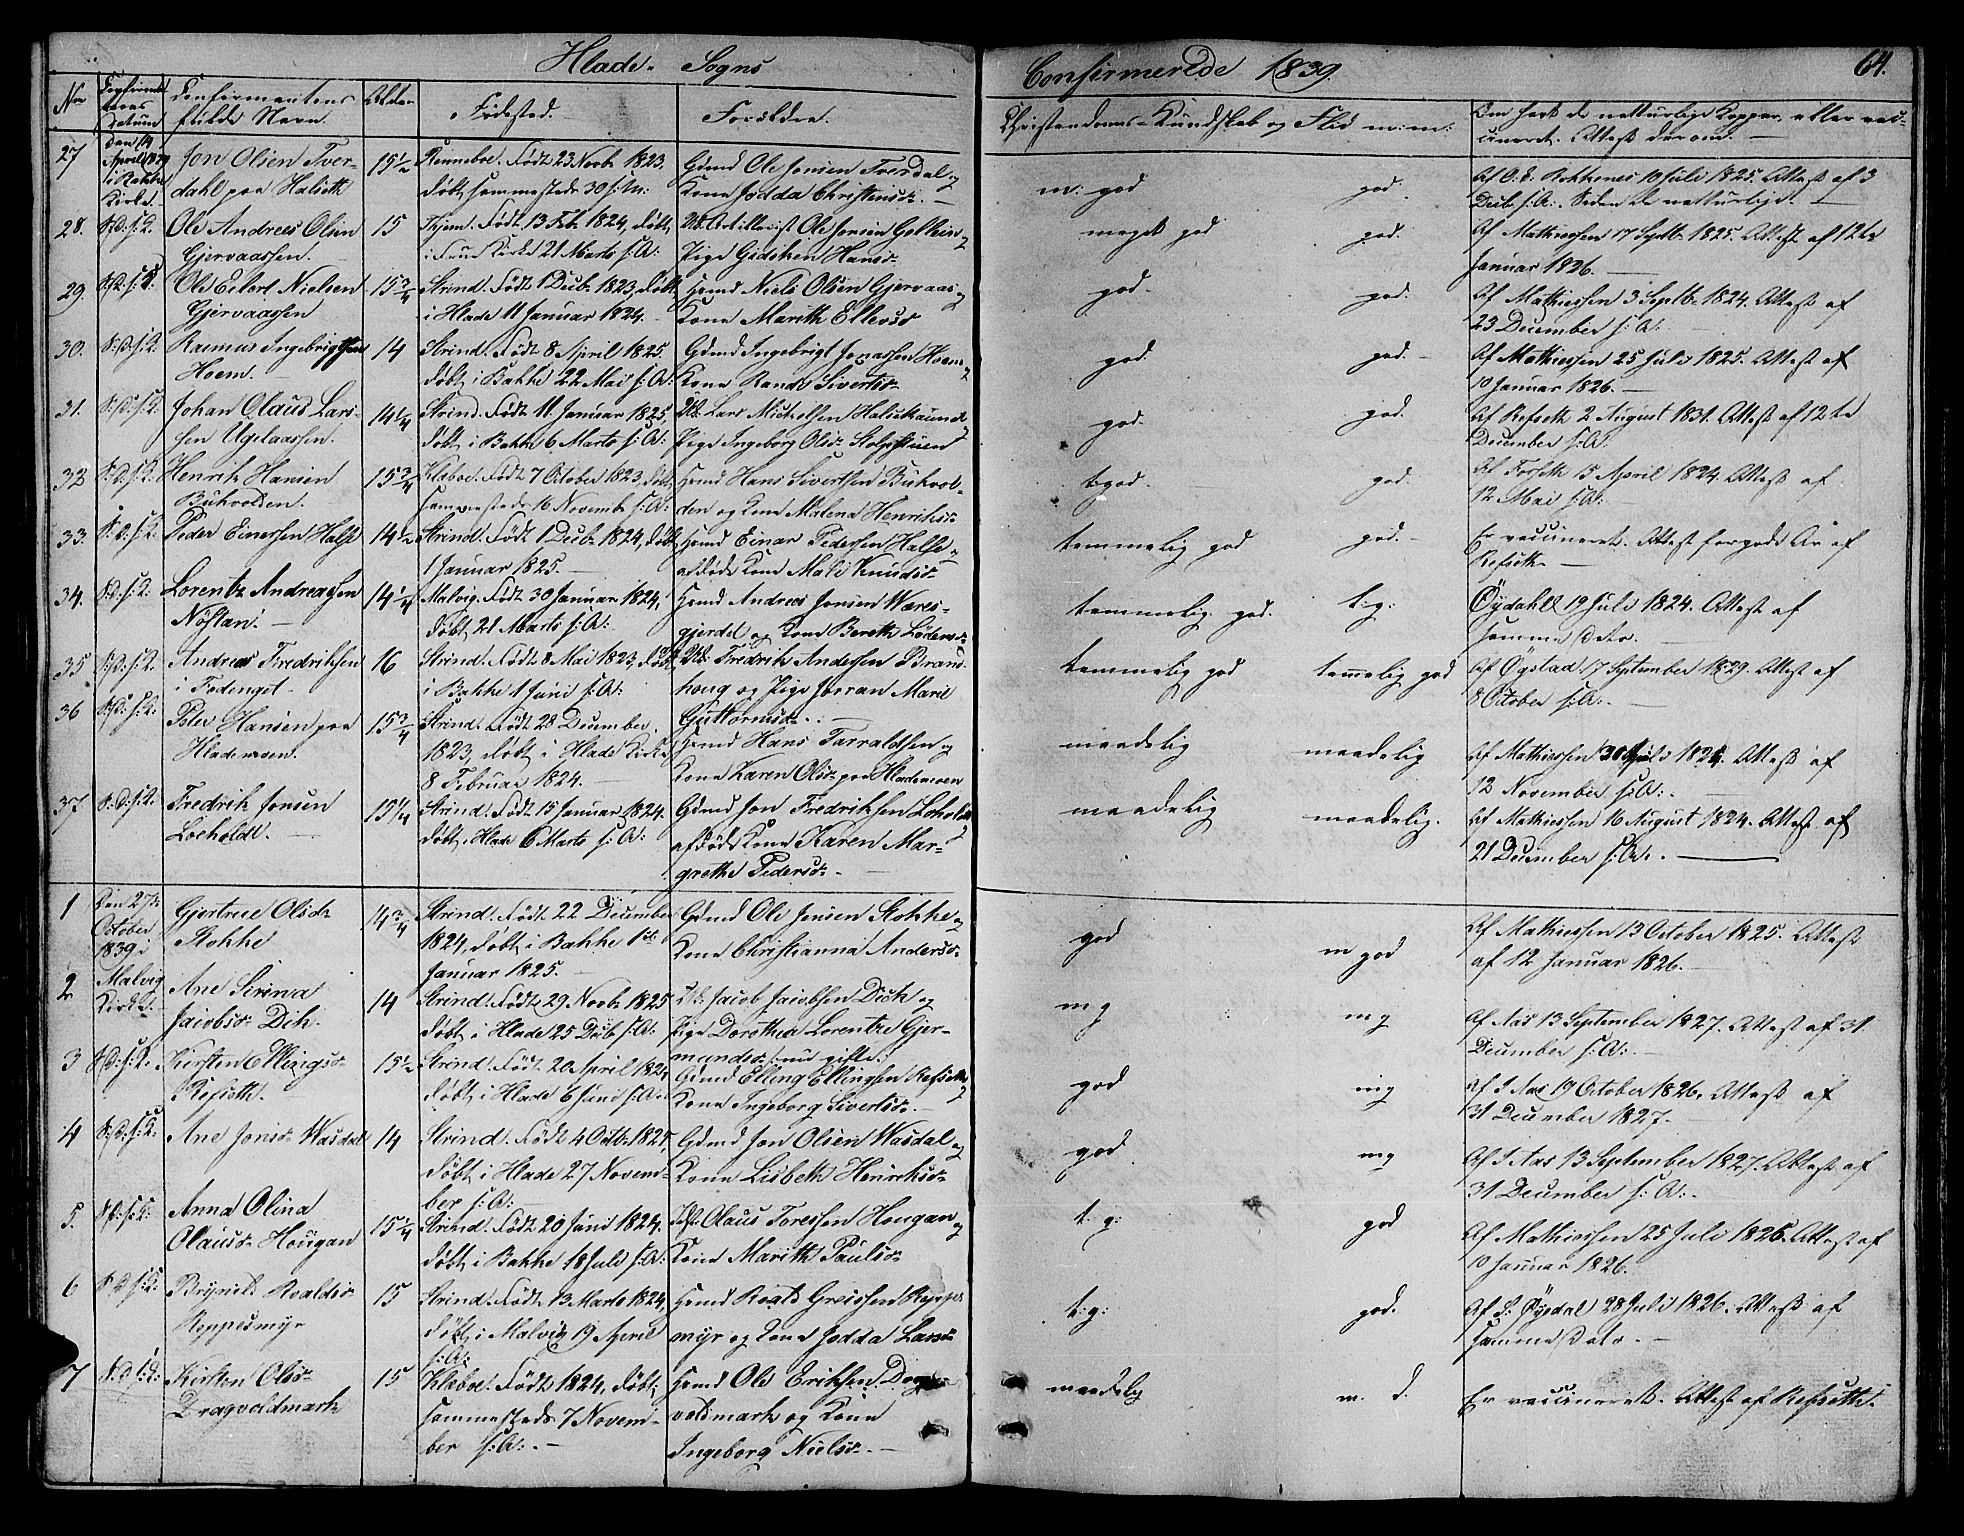 Hlade Sogns
Confirmerede 1839.
64.
No
Confirmationens Datum
Confirmantens fulde Navn.
Alder
Fødested.
Forældre.
Christendoms-Kundskab og Flid m: m:
Om havt de naturlige Kopper eller vaccineret. Attest derom.
27
Den 14 April 1839 i Bakke Kirke.
Jon Olsen Tver-
dahl paa Halseth
15 1/2
Renneboe. Født 23 Novb 1823,
døbt sammesteds 30 s: M:
Gdmd Ole Jonsen Tverdal og
Kone Jodda Christensd.
m: god
god.
Af O. E. Rokkones 10 Juli 1825. Attest af 3
Decb s: A:. Siden de naturlige.
28.
S: D: s: K:
Ole Andreas Olsen
Gjervaassen.
15
Thjem. Født 13 Feb 1824, døbt
i Frue Kirke 21 Marts s: A:
Uk: Artillerist Ole Jonsen Gellein og
Pige Gidsken Hansd
meget god
god.
Af Mathiessen 17 Septb 1825. Attest af 12te
Januar 1826.
29.
S: D: s: K:
Ole Eilert Nielsen
Gjervaassen
15 3/4
Strind. Født 1 Decb 1823, døbt
i Hlade 11 Januar 1824.
Hmd Niels Olsen Gjervaas og
Kone Marith Ellevsd
god.
god.
Af Mathiessen 3 Septb 1824. Attest af
23 December s: A:
30.
S: D: s: K:
Rasmus Ingebrigtsen
Hoem.
14
Strind. Født 8 April 1825.
døbt i Bakke 22 Mai s: A:
Gdmd Ingebrigt Jonassen Hoem og
Kone Rande Sivertsd
god.
god.
Af Mathiessen 25 Juli 1825. Attest af
10 Januar 1826.
31.
S: D: s: K:
Johan Olaus Lars-
sen Uglaassen.
14 1/4
Strind. Født 11 Januar 1825,
døbt i Bakke 6 Marts s: A:
Uk: Lars Michelsen Halsethaunet og
Pige Ingeborg Olsd Stolpestuen
god.
god.
Af Refseth 2 August 1831. Attest af 12te
December s: A:
32
S: D: s: K:
Henrik Hansen
Buhvolden.
15 3/4
Klæboe. Født 7 October 1823, døbt
sammesteds 16 Novemb s: A:
Hmd Hans Sivertsen Buhvol-
den og Kone Malena Henriksd
t: god.
god.
Af Forseth 15 April 1824. Attest af
12 Mai s: A:
33.
S: D: s: K:
Peder Einersen Halse
14 1/2
Strind. Født 1 Decb 1824, døbt
1 Januar 1825.
Hmd Einar Pedersen Halse og
afdøde Kone Mali Knudsd
temmelig god
god.
Er vaccineret. Attest foregode År af
Refseth
34.
S: D: s: K:
Lorentz Andreassen
Nøstan.
14 1/4
Malvig. Født 30 Januar 1824,
døbt 21 Marts s: A:
Hmd Andreas Jonsen Wæres-
gjerdet og Kone Bereth Lodersd
temmelig god.
t: g:
Øydahl 19 Juli 1824. Attest af
samme Dato.
35.
S: D: s: K:
Andreas Fredriksen
i Fedenget.
16
Strind. Født 8 Mai 1823, døbt
i Bakke 1 Juni s: A:
Uk: Fredrik Andersen Brand-
houg og Pige Jorran Marie
Guttormsd.
temmelig god
temelig god
Af Øystad 17 September 1829. Attest af
8 October s: A:
36
S: D: s: K:
Peter Hansen paa
Hlademoen.
15 3/4
Strind. Født 28 December
1823, døbt i Hlade Kirke
8 Februar 1824.
Hmd Hans Tarraldsen og
Kone Karen Olsd paa Hlademoen
maadelig
maadelig
Af Mathiessen 30 Juli 1824. Attest af
12 November s: A:
37
S: D: s: K:
Fredrik Jonsen
Loeholdt.
15 1/4
Strind. Født 15 Januar 1824.
døbt i Hlade 6 Marts s: A:
Gdmd Jon Fredriksen Loholdt og
afdøde Kone Karen Mar-
grethe Pedersd.
maadelig
maadelig.
Af Mathiessen 16 August 1824. Attest af
21 December s: A:.
1
Den 27de October 1839 i Malvig Kirke.
Gjertrue Olsdr
Stokke
14 3/4
Strind. Født 22 December
1824, døbt i Bakke 1ste
Januar 1825.
Gdmd Ole Jonsen Stokke og
Kone Christianna Andersd.
god
m god
Af Mathiessen 13 October 1825. Attest
af 12 Januar 1826.
2
Ane Serina
Jacobsd Dik.
14
Strind. Født 29 Novb 1825
døbt i Hlade 25 Decb s: A:
Uk: Jacob Jacobsen Dich og
Pige Dorothea Lorentze Gjer-
mundsd, nu gifte.
m g
m g
Af Aas 13 September 1827. Attest af 31
December s: A:
3
S: D: s: K:
Kirsten Ellingsd
Refseth.
15 1/2
Strind. Født 20 April 1824
døbt i Hlade 6 Juni s: A:
Gdmd Elling Ellingsen Refseth og
Kone Ingeborg Sivertsd.
god
mg
Af I Aas 19 October 1826. Attest af
31 December 1827.
4
S: D: s: K:
Ane Jonsd Wasdal
14
Strind. Født 4 Octb 1825,
døbt i Hlade 27 Novem-
ber s: A:
Gdmd Jon Olsen Wasdal og
Kone Lisbeth Henriksd
god
mg
Af I Aas 13 September 1827. Attest af
31 December s: A:
5.
S: D: s: K:
Anna Olina
Olausd Hougan
15 1/4
Strind. Født 20 Juni 1824,
døbt i Bakke 18 Juli s: A:
Olaus Toressen Hougan og
Kone Marith Paulsd
t. g:
god
Af Mathiessen 25 Juli 1825. Attest af
10 Januar 1826.
6
S: D s: K:
Brynild Roaldsd
Reppesmyr
15
Strind. Født 13 Marts 1824,
døbt i Malvig 19 April
s: A:
Hmd Roald Greissen Reppes
myr og Kone Jodda Larsd
t: g:
god.
Af S: Øysdal 28 Juli 1826. Attest af
samme Dato.
7
S: D s: K:
Kirsten Olsd
Dragvoldmark
15
Klæboe. Født 1824, døbt
sammesteds 7 Novem-
ber s: A:.
Hmd Ole Eriksen Drag-
voldmark og Kone
Ingeborg Nielsd.
maadelig
m. d.
Er vaccineret. Attest af Refseth.